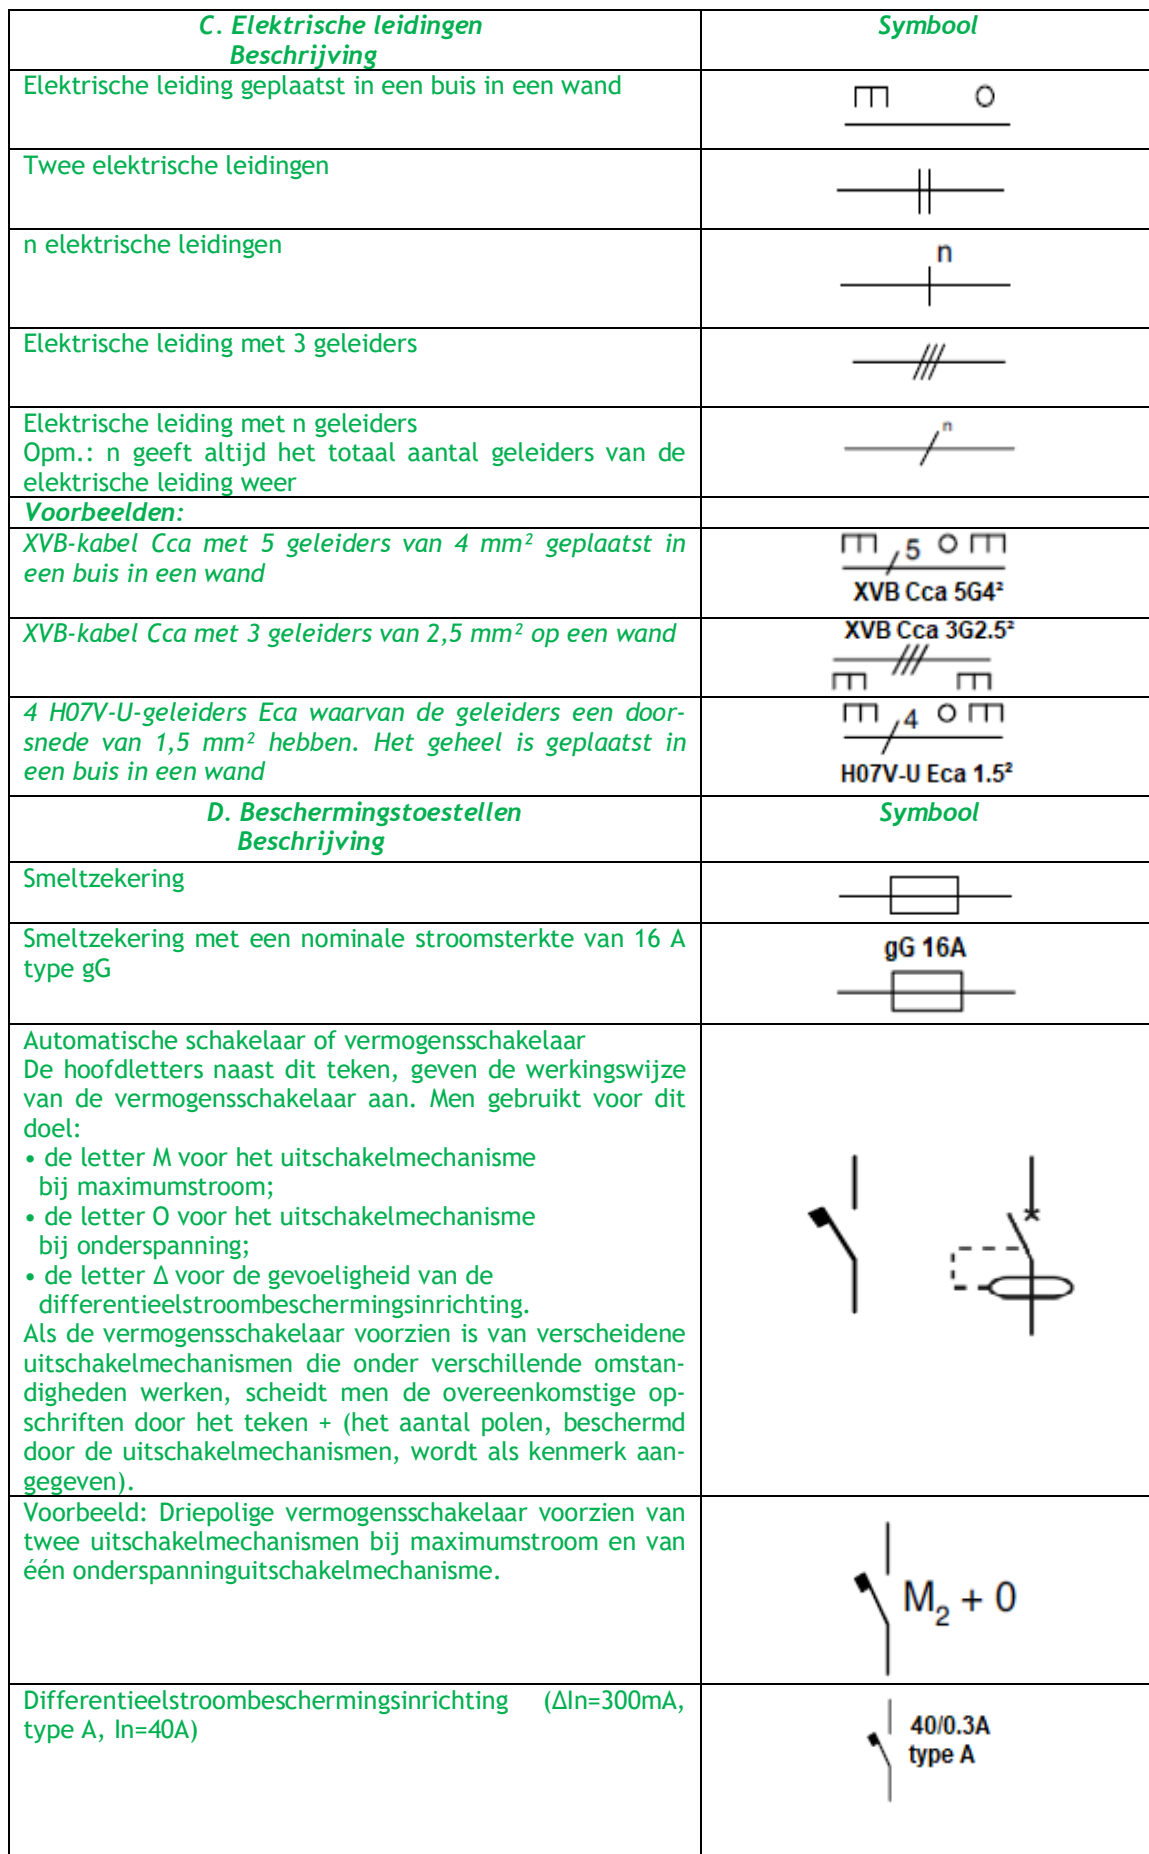 C. Elektrische leidingen
Beschrijving
Symbool
Elektrische leiding geplaatst in een buis in een wand
Twee elektrische leidingen
n elektrische leidingen
n
Elektrische leiding met 3 geleiders
Elektrische leiding met n geleiders
Opm.: n geeft altijd het totaal aantal geleiders van de
elektrische leiding weer
n
Voorbeelden:
XVB-kabel Cca met 5 geleiders van 4 mm² geplaatst in
een buis in een wand
5
XVB Cca 5G4²
XVB-kabel Cca met 3 geleiders van 2,5 mm² op een wand
XVB Cca 3G2.5²
4 H07V-U-geleiders Eca waarvan de geleiders een door-
snede van 1,5 mm² hebben. Het geheel is geplaatst in
een buis in een wand
4
H07V-U Eca 1.5²
D. Beschermingstoestellen
Beschrijving
Symbool
Smeltzekering
Smeltzekering met een nominale stroomsterkte van 16 A
type gG
gG 16A
Automatische schakelaar of vermogensschakelaar
De hoofdletters naast dit teken, geven de werkingswijze
van de vermogensschakelaar aan. Men gebruikt voor dit
doel:
• de letter M voor het uitschakelmechanisme
bij maximumstroom;
• de letter O voor het uitschakelmechanisme
bij onderspanning;
• de letter Δ voor de gevoeligheid van de
differentieelstroombeschermingsinrichting.
Als de vermogensschakelaar voorzien is van verscheidene
uitschakelmechanismen die onder verschillende omstan-
digheden werken, scheidt men de overeenkomstige op-
schriften door het teken + (het aantal polen, beschermd
door de uitschakelmechanismen, wordt als kenmerk aan-
gegeven).
Voorbeeld: Driepolige vermogensschakelaar voorzien van
twee uitschakelmechanismen bij maximumstroom en van
één onderspanninguitschakelmechanisme.
M₂ + 0
Differentieelstroombeschermingsinrichting (ΔIn=300mA,
type A, In=40A)
40/0.3A
type A